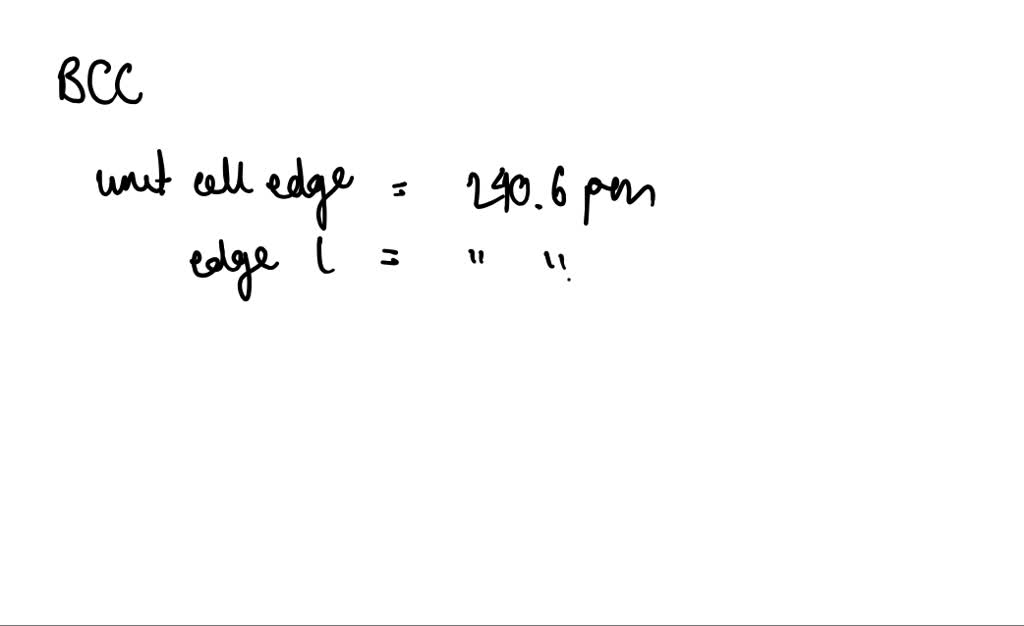 BCC
unit cell edge = 240.6 pm
edge l = " "